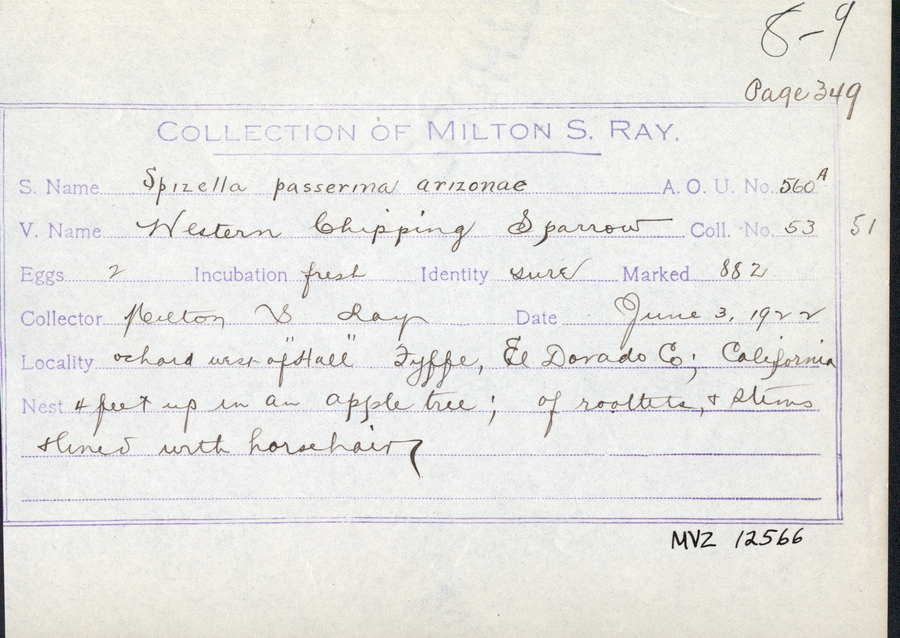 8-9
Page 349
COLLECTION OF MILTON S. RAY.
S. Name Spizella passerina arizonae A. O. U. No. 560A
V. Name Western Chipping Sparrow Coll. No. 53 51
Eggs 2 Incubation fresh Identity sure Marked 882
Collector Milton S Ray Date June 3, 1922
Locality orchard west of "Hall" Fyffe, El Dorado Co; California
Nest 4 feet up in an apple tree; of rootlets, & stems
& lined with horsehair
MVZ 12566